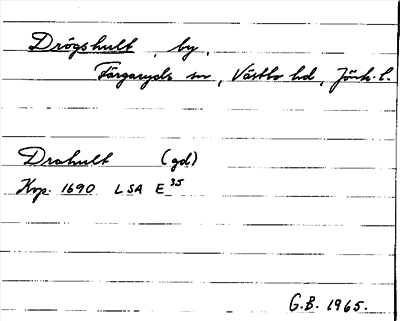 Drögshult, by,
Färgaryds sn, Västbo hd, Jönk. l.
Drahult (gd)
Kop. 1690 LSA E 35
G.B. 1965.